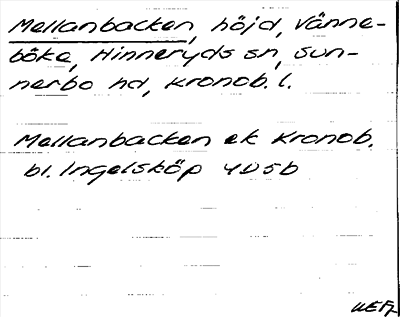 Mellanbacken, höjd, Vänne-
böke, Hinneryds sn, Sun-
nerbo hd, Kronob. l.
Mellanbacken ek Kronob.
bl. Ingelsköp 4D5b